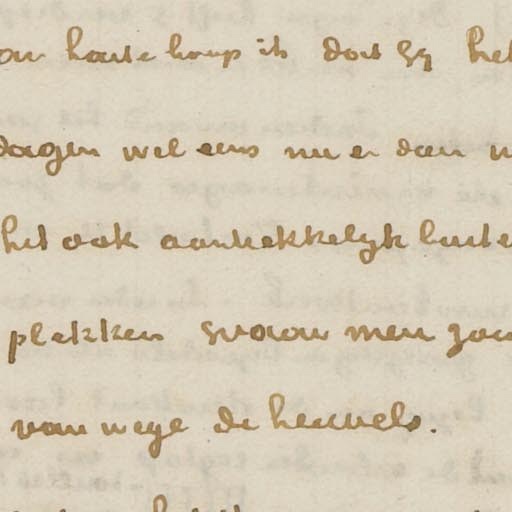 van harte hoop ik dat Gij het
dagen wel eens nu en dan
het ook aantrekkelijk buiten
plekken waar men
van wege de heuvels.